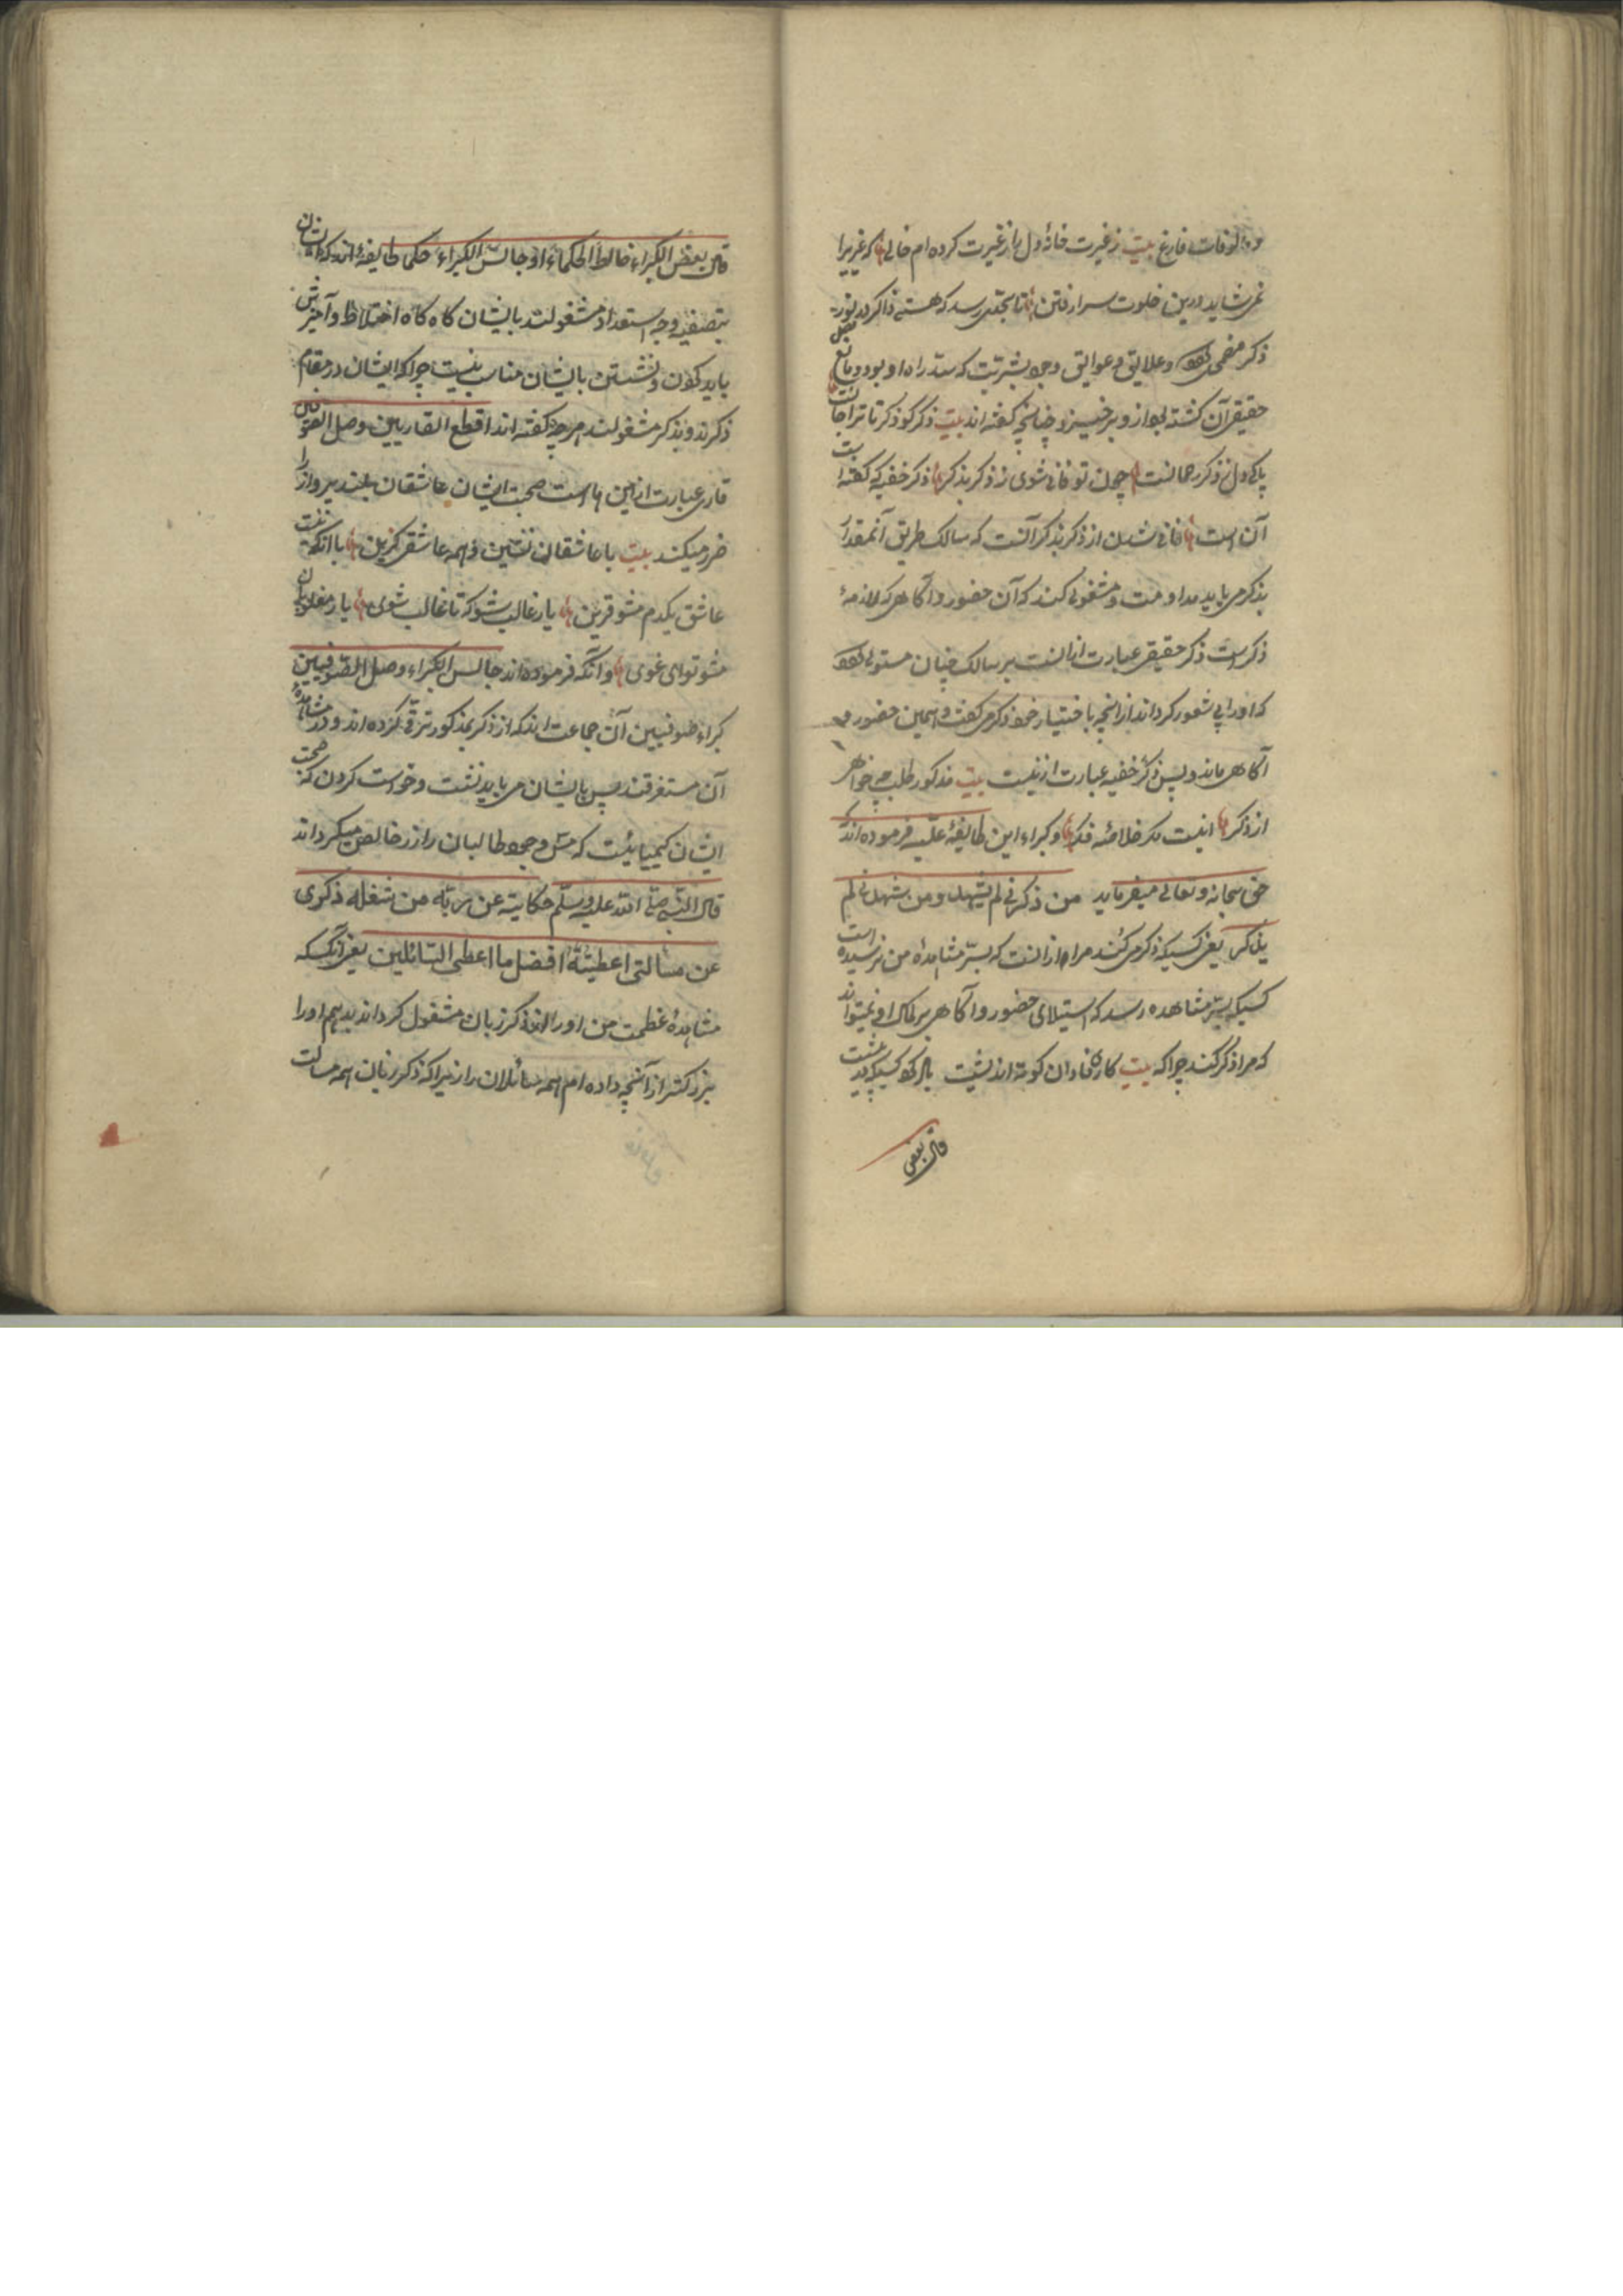 ومالوفات فارغ بیت ز غیرت خانهٔ دل را ز غیرت کرده ام خالی که غیریرا
نمی شاید درین خلوت سرا رفتن تا بحدی رسد که هستی ذاکر در نور
ذکر مضمحل شود وعلایق وعوایق وجود بشریت که سد راه او بود ومانع
حقیقی آن کشته بود از و برخیزد چنانچه کفته اند بیت ذکر کو ذکر تا ترا جانست
پاکی دل ز ذکر رحمانست چون تو فانی شوی ز ذکر بذکر ذکر خفیه که کفته اند
آن است فانی شدن از ذکر بذکر آنست که سالک طریق آنمقدار
بذکر می باید مداومت ومشغولی کند که آن حضور وآکاهی که لازمهٔ
ذکر است ذکر حقیقی عبارت از انست بر سالک چنان مستولی شود
که اورا بی شعور کرداند از انچه باختیار خود ذکر می کفت وهمین حضور و
آکاهی ماند وبس ذکر خفیه عبارت ازینست بیت مذکور طلب چه خواهی
از ذکر اینست مکر خلاصه فکر وکبراء این طایفهٔ علیه فرموده اند که
حق سبحانه وتعالی میفرماید من ذکرنی لم یشهدنی ومن شهدنی لم
یذکر یعنی کسیکه ذکر می کند مرا از انست که بسر مشاهدهٔ من نرسیده است
کسیکه بسر مشاهده رسد که استیلای حضور وآکاهی بر او نمیتواند
که مرا ذکر کند چرا که بیت کار نادان کوته اندیشست یاد کرد کسیکه در پیشست
قال بعض
قال بعض الکبراء خالط الحکماء او جالس الکبراء حکما طایفهٔ اند که ایشان
بتصفیه وجه استعداد مشغولند بایشان کاه کاه اختلاط وآمیزش
باید کردن ونشستن بایشان مناسب نیست چرا که ایشان در مقام
ذکرند وبذکر مشغولند هر چه کفته اند اقطع القاریین وصل الصوفیین
قاری عبارت ازین هاست صحبت ایشان عاشقان بلند پرواز را
ضرر میکند بیت با عاشقان نشین وهمه عاشقی کزین با آنکه نیست
عاشق یکدم مشو قرین یار غالب شو که تا غالب شوی یار مغلوبان
مشو تو ای غوی وآنکه فرموده اند جالس الکبراء وصل الصوفیین
کبراء صوفیین آن جماعت اند که از ذکر بمذکور ترقی کرده اند ودر مشاهدهٔ
آن مستغرقند پس بایشان می باید نشست وخواست کردن که صحبت
ایشان کیمیائیست که مس وجود طالبان را زر خالص میکرداند
قال النبی صلی الله علیه وسلم حکایة عن ربه من شغله ذکری
عن مسالتی اعطیته افضل ما اعطی السائلین یعنی آنکسکه
مشاهدهٔ عظمت من اورا از ذکر زبان مشغول کرداند بدهم اورا
بزرکتر از آنچه داده ام همه سائلان را زیرا که ذکر زبان همه مسالت